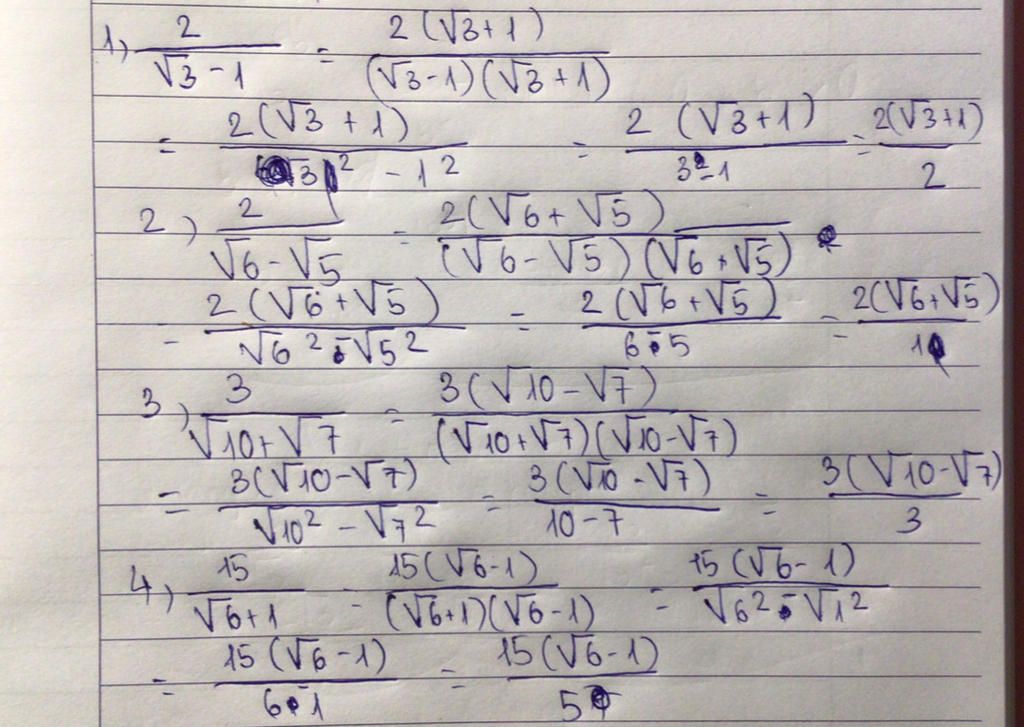 1) 2/(√3 - 1) = 2(√3+1)/((√3-1)(√3+1))
= 2(√3+1)/(√3² - 1²) = 2(√3+1)/(3-1) = 2(√3+1)/2
2) 2/(√6-√5) = 2(√6+√5)/((√6-√5)(√6+√5))
= 2(√6+√5)/(√6² - √5²) = 2(√6+√5)/(6-5) = 2(√6+√5)/1
3) 3/(√10+√7) = 3(√10-√7)/((√10+√7)(√10-√7))
= 3(√10-√7)/(√10² - √7²) = 3(√10-√7)/(10-7) = 3(√10-√7)/3
4) 15/(√6+1) = 15(√6-1)/((√6+1)(√6-1)) = 15(√6-1)/(√6² - √1²)
= 15(√6-1)/(6-1) = 15(√6-1)/5